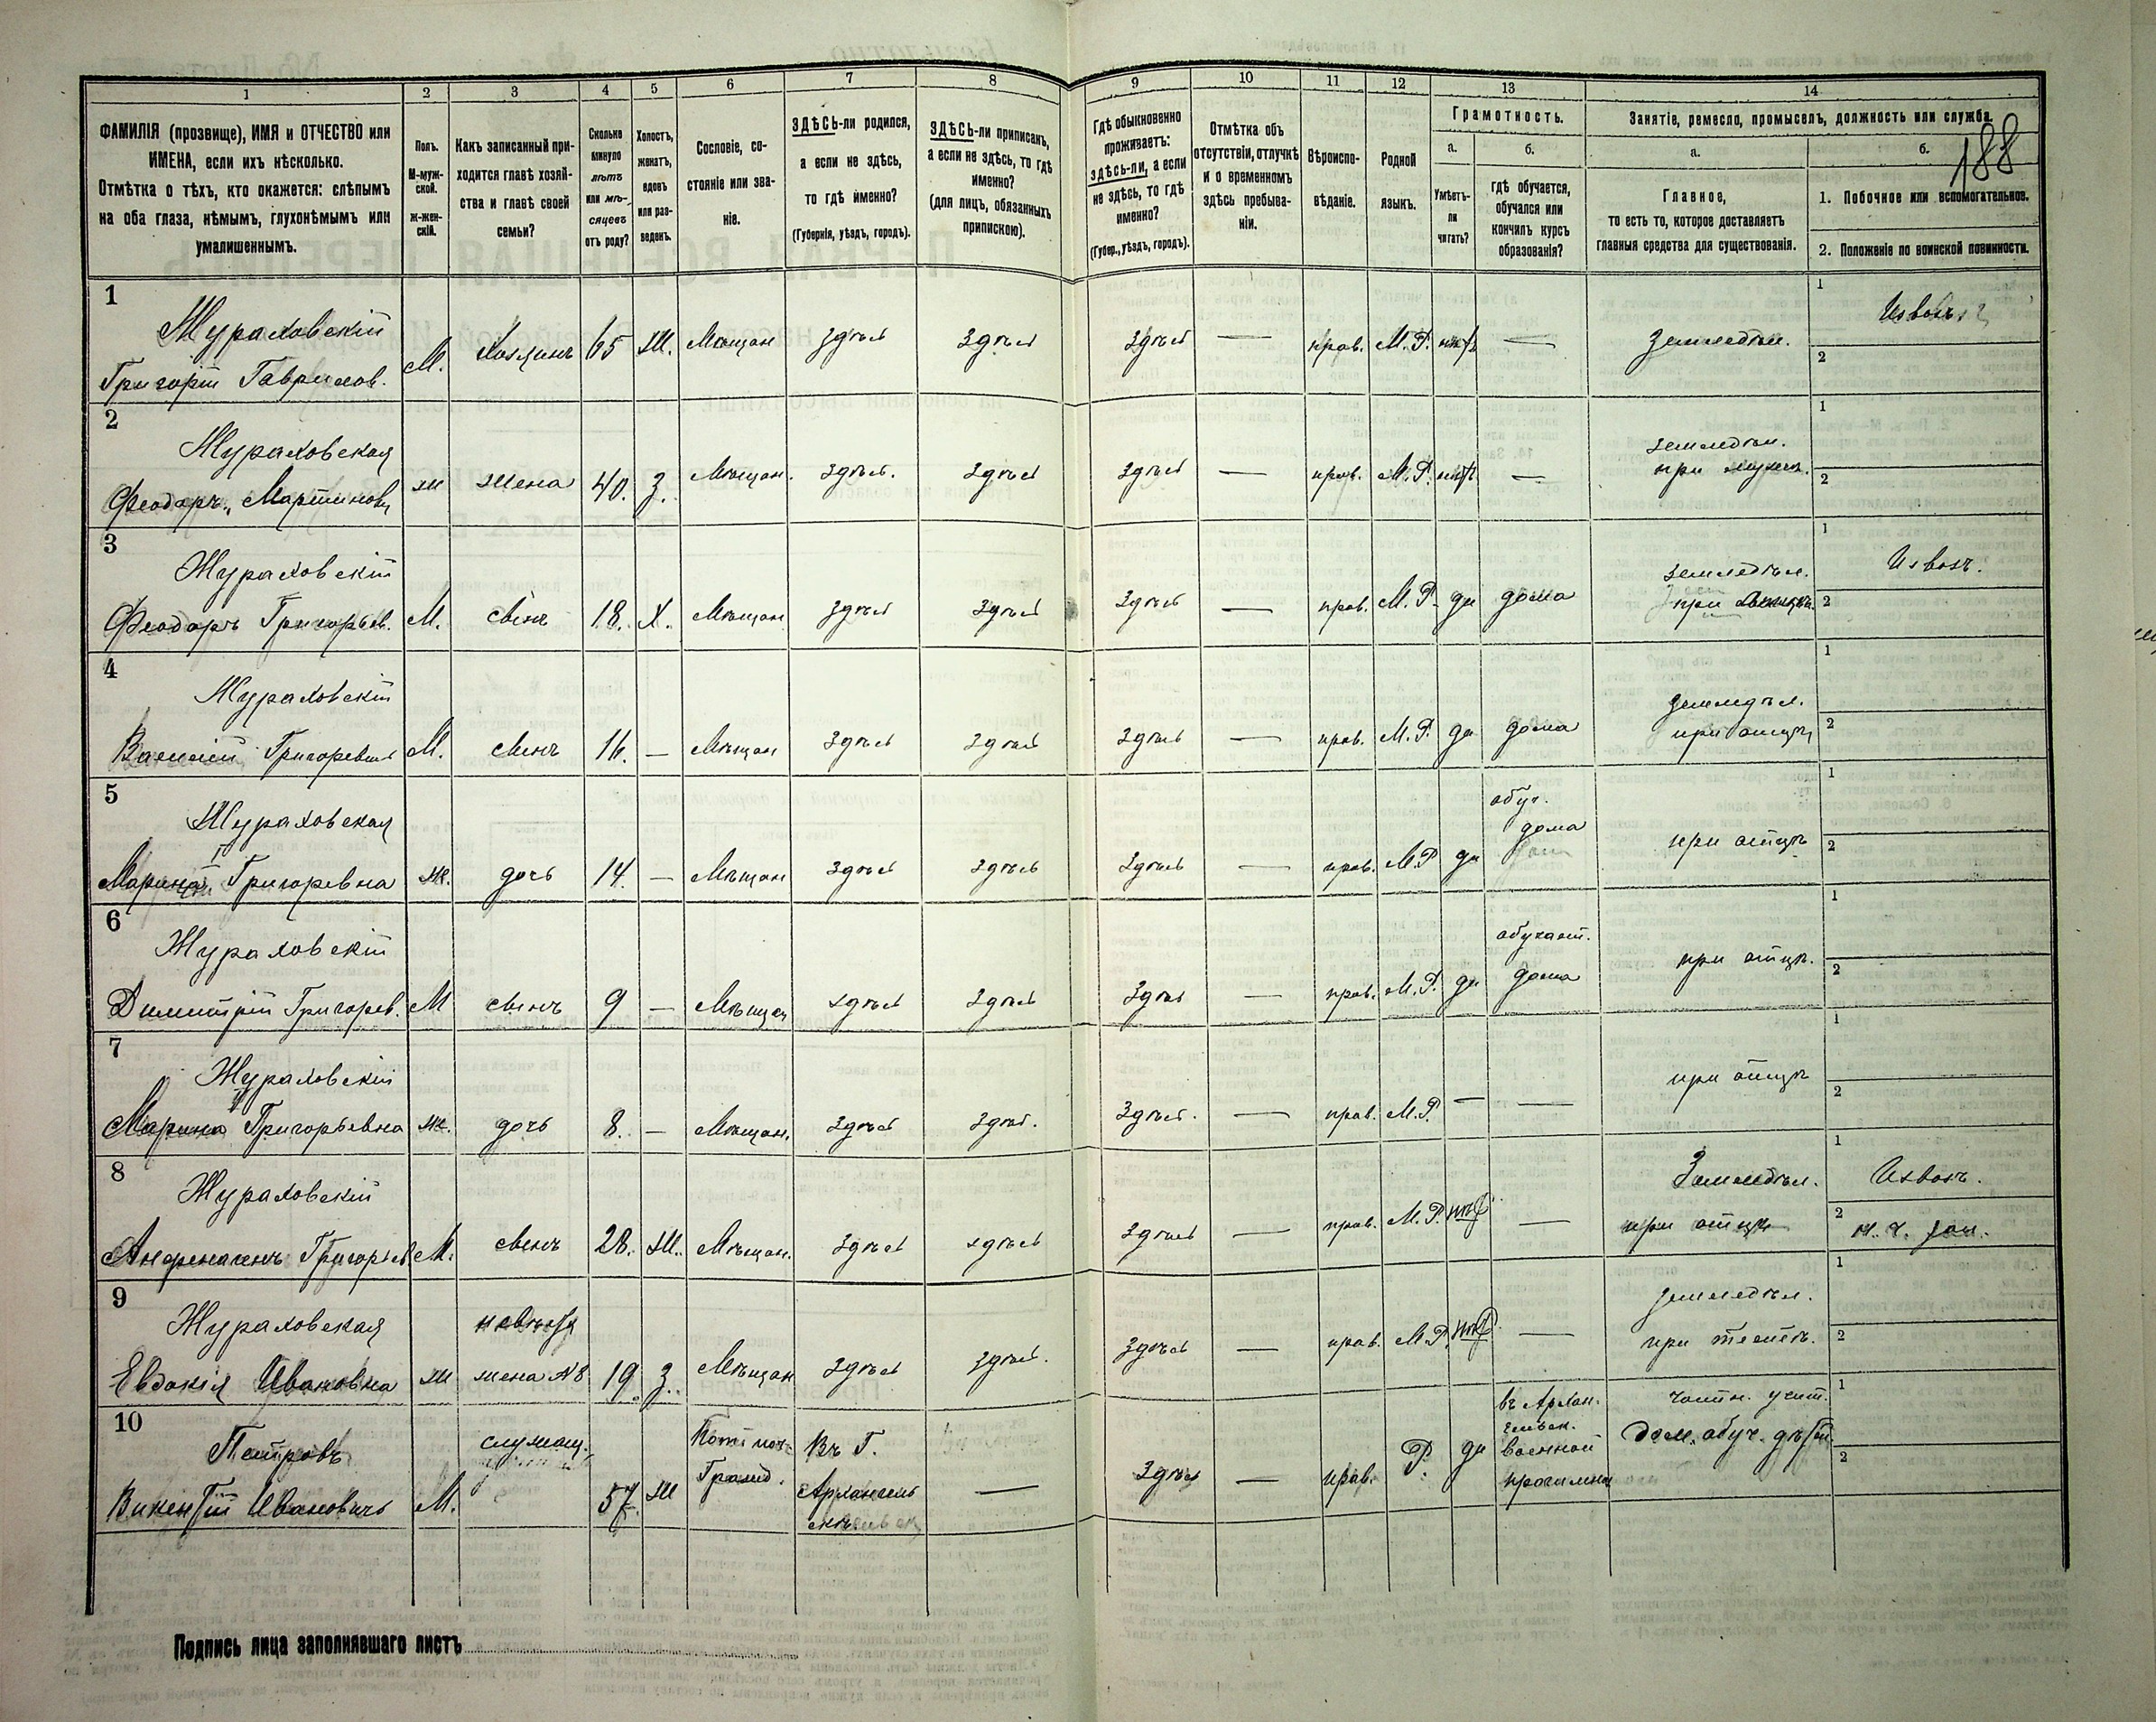 1 2 3 4 5 6 7 8 9 10 11 12 13 14
ФАМИЛІЯ (прозвище), ИМЯ и ОТЧЕСТВО или
ИМЕНА, если ихъ нѣсколько.
Отмѣтка о тѣхъ, кто окажется: слѣпымъ
на оба глаза, нѣмымъ, глухонѣмымъ или
умалишеннымъ.
Полъ.
М-муж-
ской.
ж-жен-
скій.
Какъ записанный при-
ходится главѣ хозяй-
ства и главѣ своей
семьи?
Сколько
минуло
лѣтъ
или мѣ-
сяцевъ
отъ роду?
Холостъ,
женатъ,
вдовъ
или раз-
веденъ.
Сословіе, со-
стояніе или зва-
ніе.
ЗДѢСЬ-ли родился,
а если не здѣсь,
то гдѣ именно?
(Губернія, уѣздъ, городъ).
ЗДѢСЬ-ли приписанъ,
а если не здѣсь, то гдѣ
именно?
(для лицъ, обязанныхъ
припискою).
Гдѣ обыкновенно
проживаетъ:
здѣсь-ли, а если
не здѣсь, то гдѣ
именно?
(Губер., уѣздъ, городъ).
Отмѣтка объ
отсутствіи, отлучкѣ
и о временномъ
здѣсь пребыва-
ніи.
Вѣроиспо-
вѣданіе.
Родной
языкъ.
Грамотность.
а.
Умѣетъ-
ли
читать?
б.
гдѣ обучается,
обучался или
кончилъ курсъ
образованія?
Занятіе, ремесло, промыселъ, должность или служба.
188
а.
Главное,
то есть то, которое доставляетъ
главныя средства для существованія.
б.
1. Побочное или вспомогательное.
2. Положеніе по воинской повинности.
1
Жураховскій
Григорій Гаврилов.
М. Хозяинъ 65 Ж. Мѣщан здѣсь здѣсь здѣсь — прав. М.Р. нѣтъ — земледѣл.
1 Извозъ
2
2
Жураховская
Феодора Мартинова
ж жена 40. З. Мѣщан. здѣсь. здѣсь здѣсь — прав. М.Р. нѣтъ —
земледѣл.
при мужѣ.
1
2
3
Жураховскій
Феодоръ Григорьев.
М. сынъ 18. Х. Мѣщан здѣсь здѣсь здѣсь — прав. М.Р. да дома
земледѣл.
при
1 Извозъ.
2
4
Жураховскій
Василій Григоревич
М. сынъ 16. — Мѣщан здѣсь здѣсь здѣсь — прав. М.Р. да дома
земледѣл.
при отцѣ
1
2
5
Жураховская
Григоревна
ж. дочь 14. — Мѣщан здѣсь здѣсь здѣсь — прав. М.Р да
обуч.
дома
при отцѣ
1
2
6
Жураховскій
Димитрій Григорев.
М сынъ 9 — Мѣщан здѣсь здѣсь здѣсь — прав. М.Р. да
обучает.
дома
при отцѣ.
1
2
7
Жураховскій
Марина Григорьевна
ж. дочь 8. — Мѣщан. здѣсь здѣс. здѣсь. — прав. М.Р. — — при отцѣ
1
2
8
Жураховскій
Григорьев
М. сынъ 28. Ж. Мѣщан. здѣсь здѣсь здѣсь — прав. М.Р. нѣтъ —
Земледѣл.
при отцѣ
1 Извозъ.
2
9
Жураховская
Евдокія Ивановна
ж
невѣстка
жена №8
19. З. Мѣщан здѣсь здѣсь. здѣсь — прав. М.Р. нѣтъ. —
земледѣл.
при тестѣ.
1
2
10
Петровъ
Викентій Ивановичъ
М.
служащ.
57. ж
Гражд.
Въ Г.
Архангель
скѣ
— здѣсь — прав. Р. да
въ Архан-
гельск.
военной
прогимназ
частн. учит.
Дом. обуч. дѣтей
1
2
Подпись лица заполнявшаго листъ